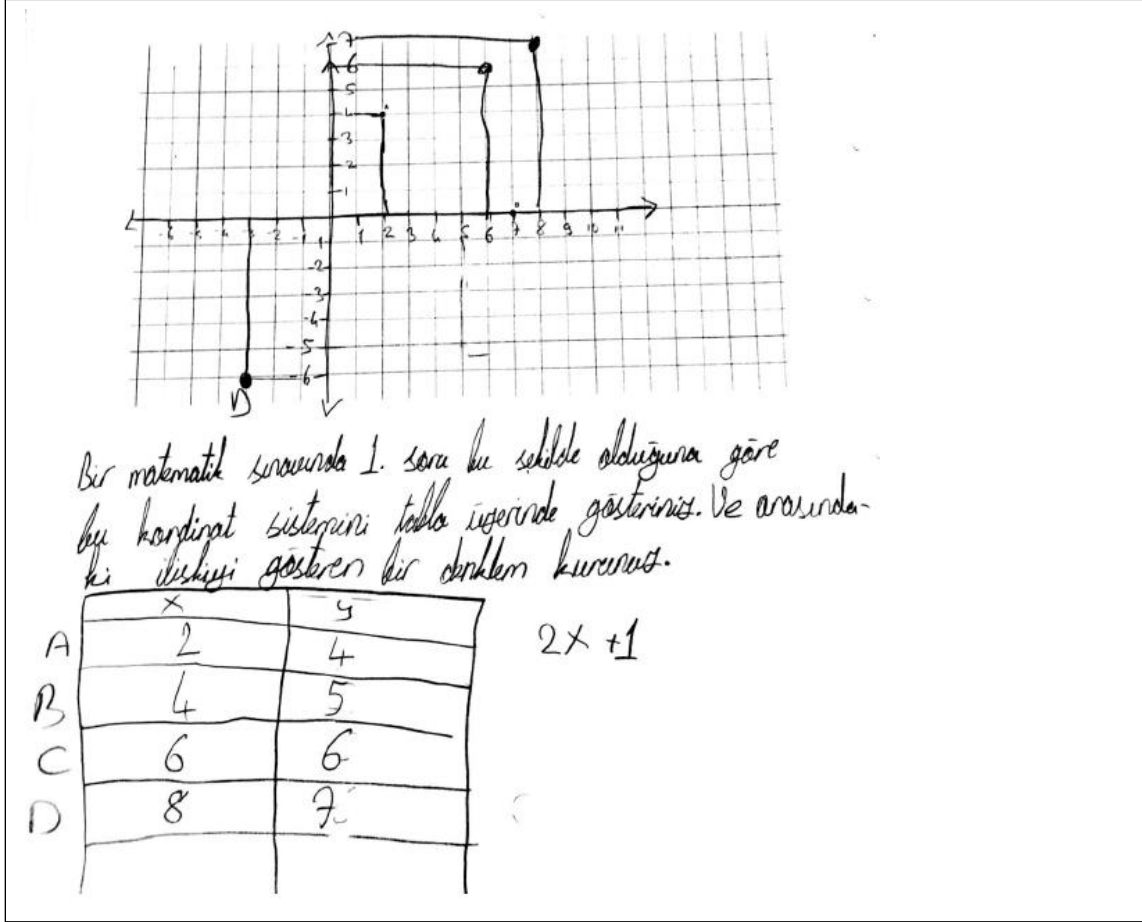 7
6
5
4
3
2
1
-6 -5 -4 -3 -2 -1 1 2 3 4 5 6 7 8 9 10 11
-1
-2
-3
-4
-5
-6
D
Bir matematik sınavında 1. soru bu şekilde olduğuna göre
bu kordinat sistemini tablo üzerinde gösteriniz. Ve arasında-
ki ilişkiyi gösteren bir denklem kurunuz.
x y
A 2 4 2x +1
B 4 5
C 6 6
D 8 7